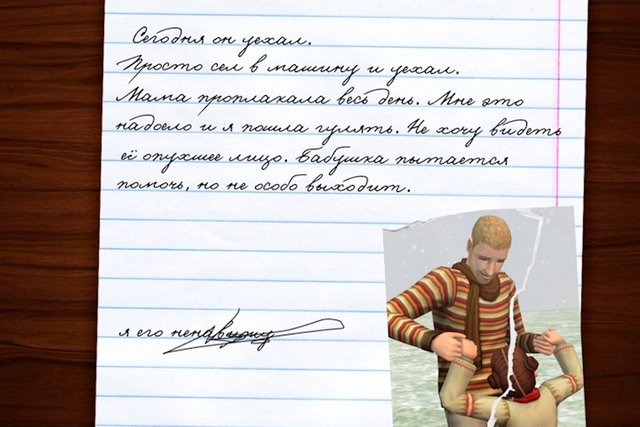 Сегодня он уехал.
Просто сел в машину и уехал.
Мама проплакала весь день. Мне это
надоело и я пошла гулять. Не хочу видеть
её опухшее лицо. Бабушка пытается
помочь, но не особо выходит.
я его ненавижу